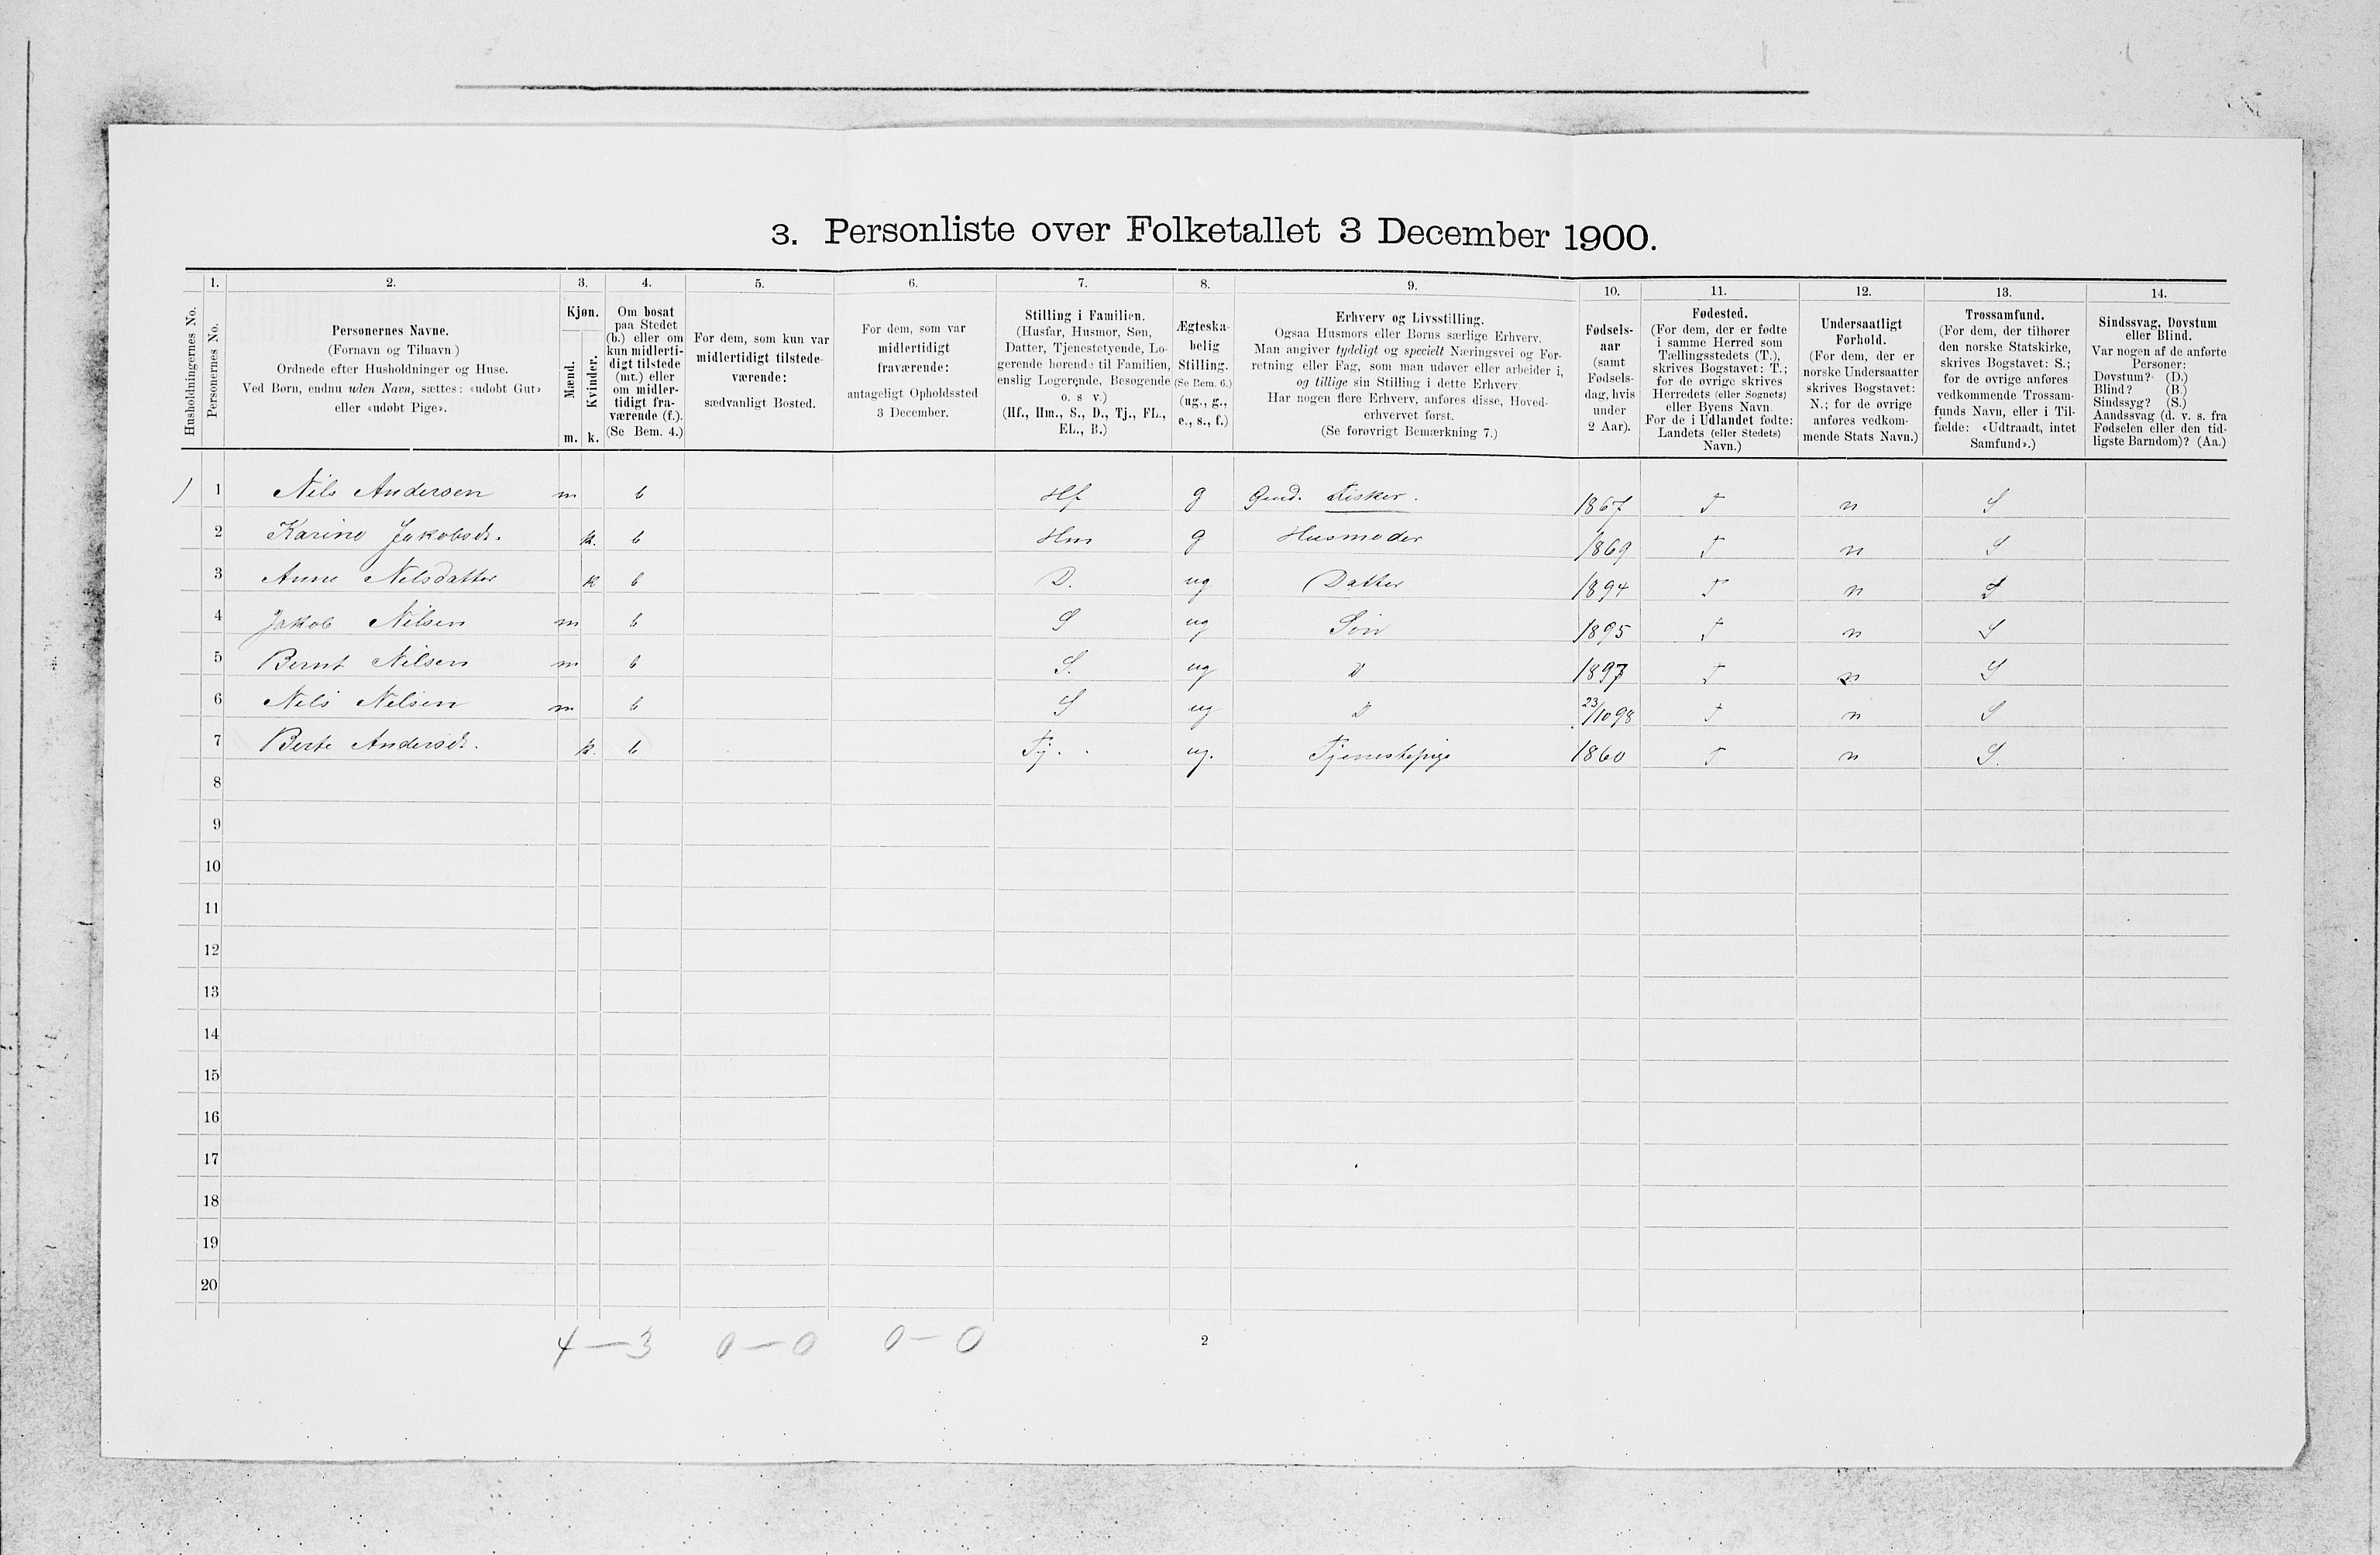 3. Personliste over Folketallet 3 December 1900.
1. 2. 3. 4. 5. 6. 7. 8. 9. 10. 11. 12. 13. 14.
Husholdningernes No.
Personernes No.
Personernes Navne.
(Fornavn og Tilnavn)
Ordnede efter Husholdninger og Huse.
Ved Børn, endnu uden Navn, sættes: «udøbt Gut»
eller «udøbt Pige».
Kjøn.
Mænd.
Kvinder.
m. k.
Om bosat
paa Stedet
(b.) eller om
kun midlerti-
digt tilstede
(mt.) eller
om midler-
tidigt fra-
værende (f.).
(Se Bem. 4.)
For dem, som kun var
midlertidigt tilstede-
værende:
sædvanligt Bosted.
For dem, som var
midlertidigt
fraværende:
antageligt Opholdssted
3 December.
Stilling i Familien.
(Husfar, Husmor, Søn,
Datter, Tjenestetyende, Lo-
gerende hørende til Familien,
enslig Logerende, Besøgende
o. s v.)
(Hf., Hm., S., D., Tj., FL.,
EL., B.)
Ægteska-
belig
Stilling.
(Se Bem. 6.)
(ug., g.,
e., s., f.)
Erhverv og Livsstilling.
Ogsaa Husmors eller Børns særlige Erhverv.
Man angiver tydeligt og specielt Næringsvei og For-
retning eller Fag, som man udøver eller arbeider i,
og tillige sin Stilling i dette Erhverv.
Har nogen flere Erhverv, anføres disse, Hoved-
erhvervet først.
(Se forøvrigt Bemærkning 7.)
Fødsels-
aar
(samt
Fødsels-
dag, hvis
under
2 Aar).
Fødested.
(For dem, der er fødte
i samme Herred som
Tællingsstedets (T.),
skrives Bogstavet: T.;
for de øvrige skrives
Herredets (eller Sognets)
eller Byens Navn.
For de i Udlandet fødte:
Landets (eller Stedets)
Navn.)
Undersaatligt
Forhold.
(For dem, der er
norske Undersaatter
skrives Bogstavet:
N.; for de øvrige
anføres vedkom-
mende Stats Navn.)
Trossamfund.
(For dem, der tilhører
den norske Statskirke,
skrives Bogstavet: S.;
for de øvrige anføres
vedkommende Trossam-
funds Navn, eller i Til-
fælde: «Udtraadt, intet
Samfund».)
Sindssvag, Døvstum
eller Blind.
Var nogen af de anførte
Personer:
Døvstum? (D.)
Blind? (B.)
Sindssyg? (S.)
Aandssvag (d. v. s. fra
Fødselen eller den tid-
ligste Barndom)? (Aa.)
) 1 Nils Andersen m b Hf g Fisker. 1867 T n S
2 Karine Jakobsdt. k. b Hm g Husmoder 1869 T n S
3 Anne Nilsdatter k b D. ug Datter 1894 T n S
4 Jakob Nilsen m b S ug Søn 1895 T n S
5 Bernt Nilsen m b S. ug D 1897 T n S
6 Nils Nilsen m b S ug D 23/10 98 T n S
7 Berte Andersdt. k. b Tj. ug. Tjenestepige 1860 T n S.
8
9
10
11
12
13
14
15
16
17
18
19
20
4 — 3 0 — 0 0 — 0 2